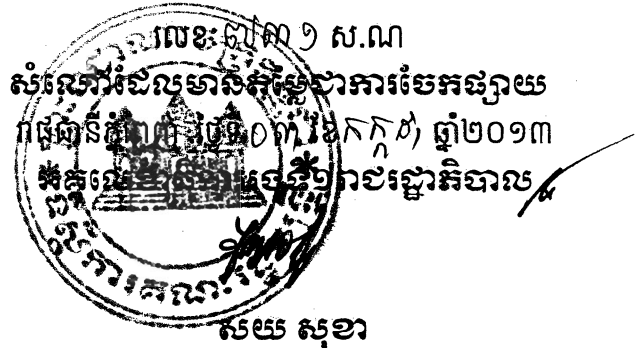 លេខ: ៧៣១ ស.ណ
សំណៅដែលមានតម្លៃជាការចែកផ្សាយ
រាជធានីភ្នំពេញ ថ្ងៃទី០៣ ខែកក្កដា ឆ្នាំ២០១៣
អគ្គលេខាធិការរាជរដ្ឋាភិបាល
សយ សុខា